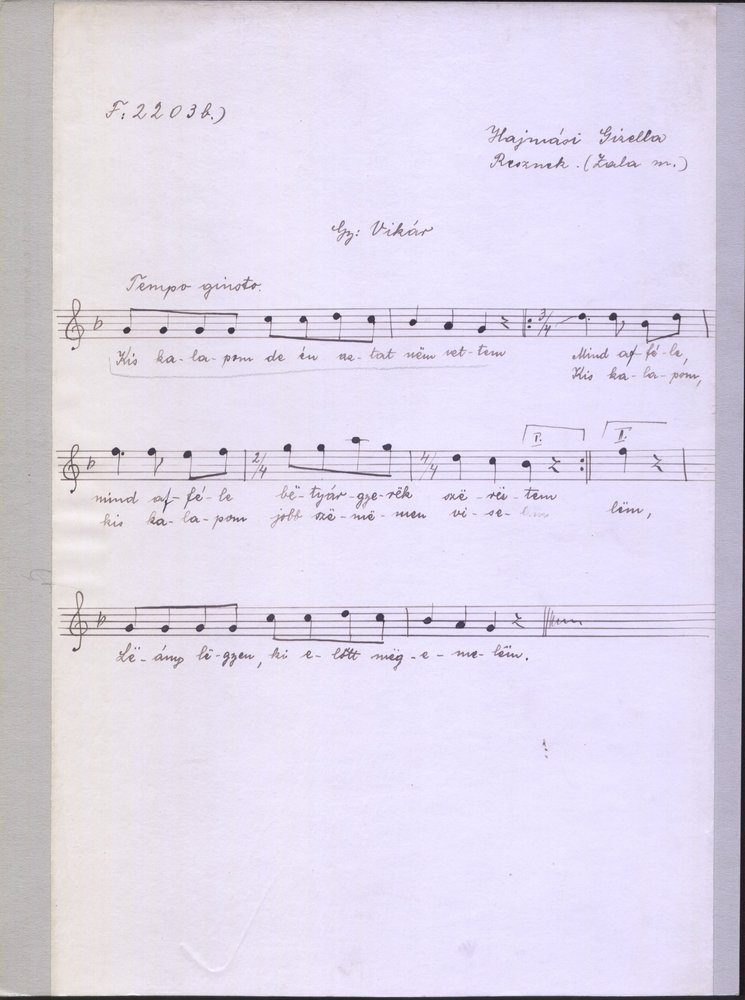 F: 2203b.)
Hajmási Gizella
Resznek. (Zala m.)
Gy: Vikár
Tempo giusto.
3/4
Kis ka-la-pom de én az-tat nëm vet-tem Mind af-fé-le,
Kis ka-la-pom,
2/4 4/4 I. II.
mind af-fé-le bë-tyár-gye-rëk szë-rës-tem
kis ka-la-pom jobb szë-më-men vi-se- lëm,
Lë-ány lë-gyen, ki e-lőtt mëg-e-me-lëm.